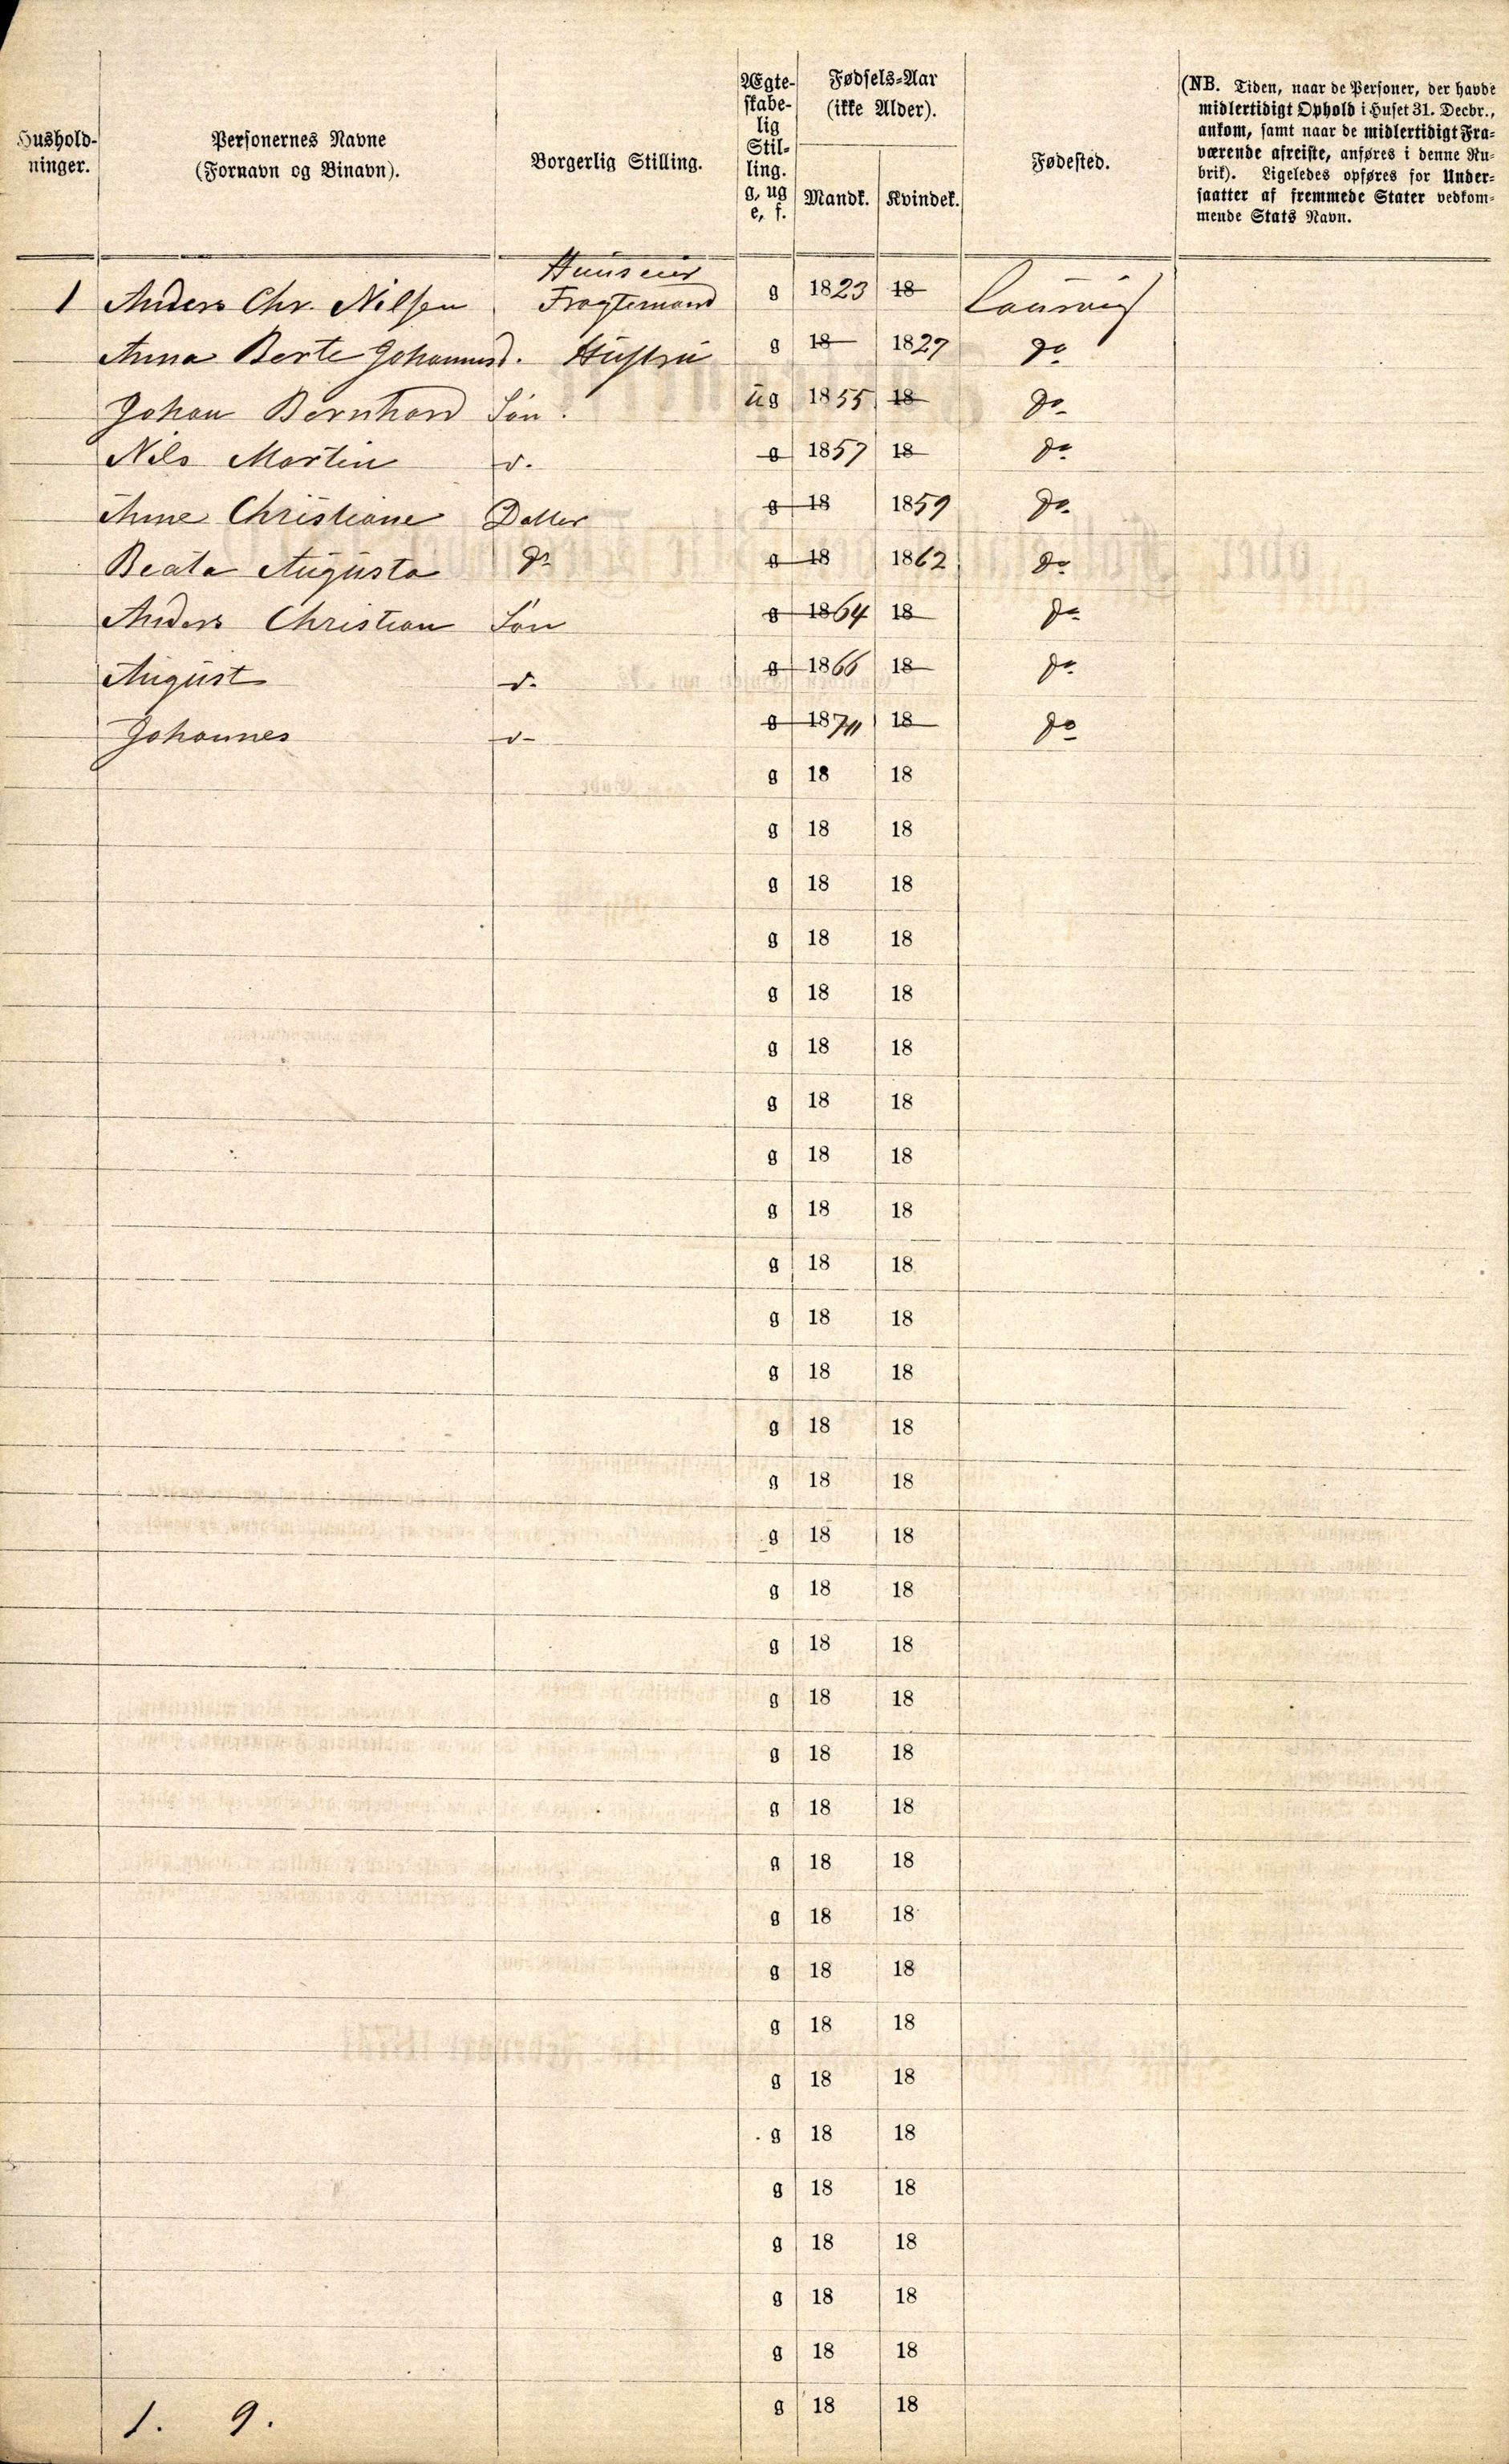 Hushold-
ninger.
Personernes Navne
(Fornavn og Binavn).
Borgerlig Stilling.
Ægte-
skabe-
lig
Stil-
ling.
g, ug
e, f.
Fødsels-Aar
(ikke Alder).
Mandk.
Kvindek.
Fødested.
(NB. Tiden, naar de Personer, der havde
midlertidigt Ophold i Huset 31. Decbr.,
ankom, samt naar de midlertidigt Fra-
værende afreiste, anføres i denne Ru-
brik). Ligeledes opføres for Under-
saatter af fremmede Stater vedkom-
mende Stats Navn.
Huuseier
1 Anders Chr. Nilsen Fragtemand g 1823 18 Laurvig
Anna Berte Johannesd. Hustru g 18 1827 do
Johan Bernhard Søn. ug 1855 18 do
Nils Martin d. g 1857 18 do
Anne Christiane Datter g 18 1859 do
Beata Augusta do g 18 1862 do
Anders Christian Søn g 1864 18 do
August d. g 1866 18 do
Johannes d g 1870 18 do
g 18 18
g 18 18
g 18 18
g 18 18
g 18 18
g 18 18
g 18 18
g 18 18
g 18 18
g 18 18
g 18 18
g 18 18
g 18 18
g 18 18
g 18 18
g 18 18
g 18 18
g 18 18
g 18 18
g 18 18
g 18 18
g 18 18
g 18 18
g 18 18
g 18 18
g 18 18
g 18 18
g 18 18
g 18 18
g 18 18
g 18 18
1. 9.